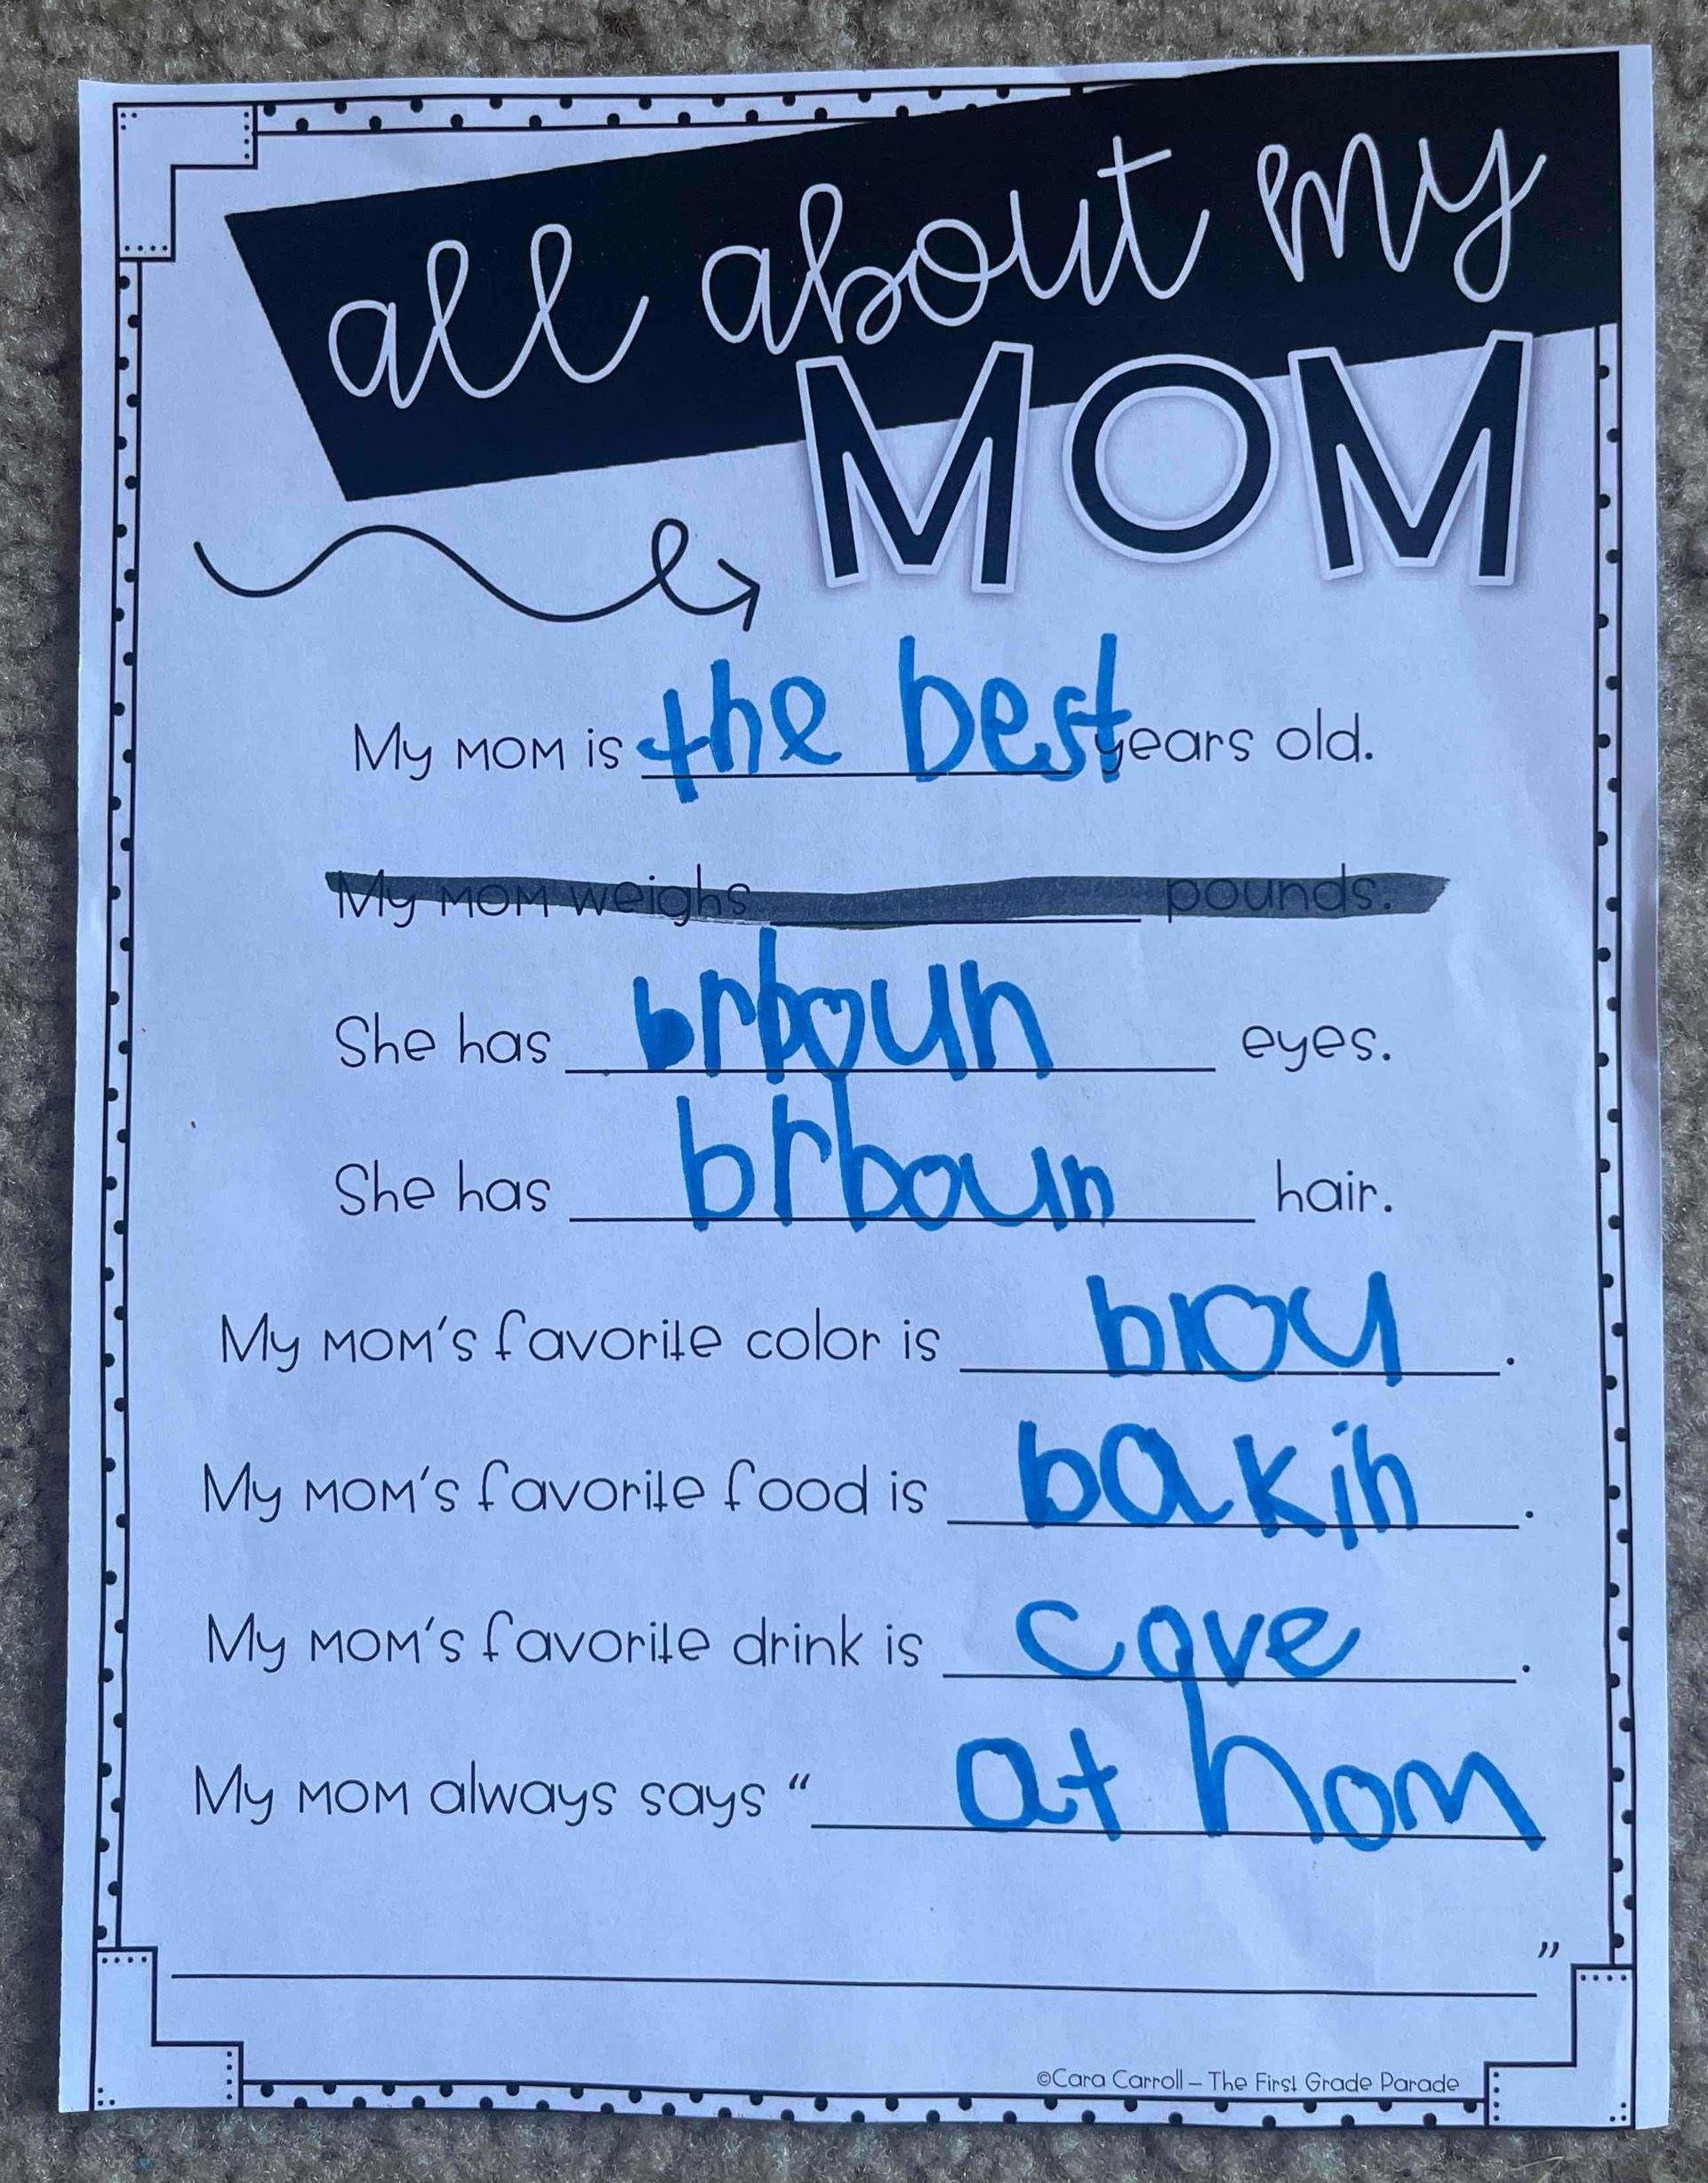 all about my
MOM
My MOM is the best years old.
My MOM weighs pounds.
She has brboun eyes.
She has brboun hair.
My MOM's favorite color is bloy.
My MOM's favorite food is bakin.
My MOM's favorite drink is cave.
My MOM always says "at hom
"
©Cara Carroll – The First Grade Parade